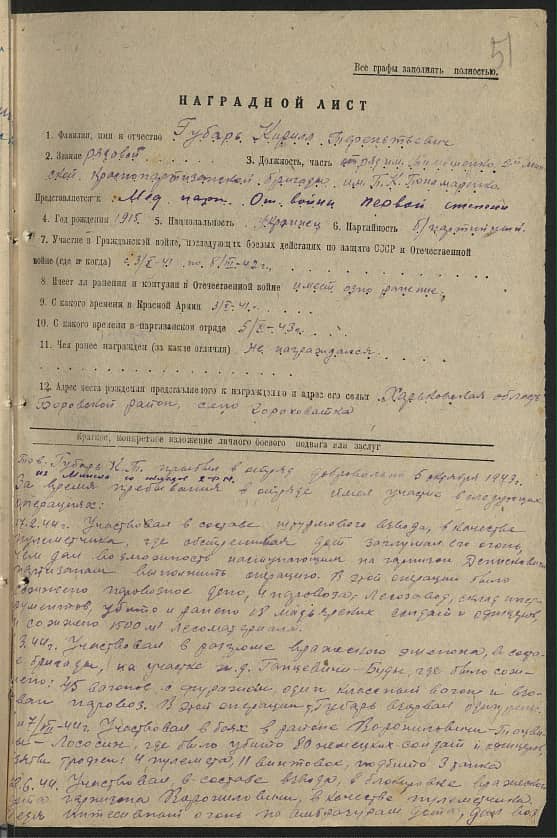 51
Все графы заполнять полностью.
НАГРАДНОЙ ЛИСТ
1. Фамилия, имя и отчество Губарь Кирилл Терентьевич
2. Звание рядовой 3. Должность, часть отряд им. Тимошенко
Краснопартизанской бригады им. П. К. Пономаренко
Представляется к Мед. парт. От. войны первой степени
4. Год рождения 1915 5. Национальность украинец 6. Партийность б/партийный
7. Участие в Гражданской войне, последующих боевых действиях по защите СССР и Отечественной
войне (где и когда) с 3/X-41 по 8/III-42 г.
8. Имеет ли ранения и контузии в Отечественной войне имеет одно ранение
9. С какого времени в Красной Армии 3/X-41 г.
10. С какого времени в партизанском отряде 5/X-43 г.
11. Чем ранее награжден (за какие отличия) Не награждался
12. Адрес места рождения представляемого к награждению и адрес его семьи Харьковская область
Боровской район, село Гороховатка
Краткое, конкретное изложение личного боевого подвига или заслуг
Тов. Губарь К. Т. прибыл в отряд добровольно 5 октября 1943 г.
из
За время пребывания в отряде имел участие в следующих
операциях:
17.2.44. Участвовал в составе штурмового взвода, в качестве
пулеметчика, где обстреливая дзот заглушал его огонь,
чем дал возможность наступающим на гарнизон Денисковичи
партизанам выполнить операцию. В этой операции было
сожжено паровозное депо, паровоза, Лесозавод, склад инстр-
ументов, убито и ранено 18 мадьярских солдат и офицеров
и сожжено 1500 м³ Лесоматериала.
3.44 г. Участвовал в разгроме вражеского эшелона, в соста-
ве бригады, на участке ж.д. Ганцевичи-Буды, где было сож-
жено: 45 вагонов с фуражом, один классный вагон и взо-
рван паровоз. В этой операции, Губарь взорвал один рельс.
17/III-44 г. Участвовал в боях в районе
Лососин, где было убито 80 немецких солдат и офицеров,
взяты трофеи: 4 пулемета, 11 винтовок, подбито 3 танка
6.44. Участвовал в составе взвода, в блокировке вражеского
гарнизона в качестве пулеметчика,
ведя интенсивный огонь по амбразурам дзота, дал воз-